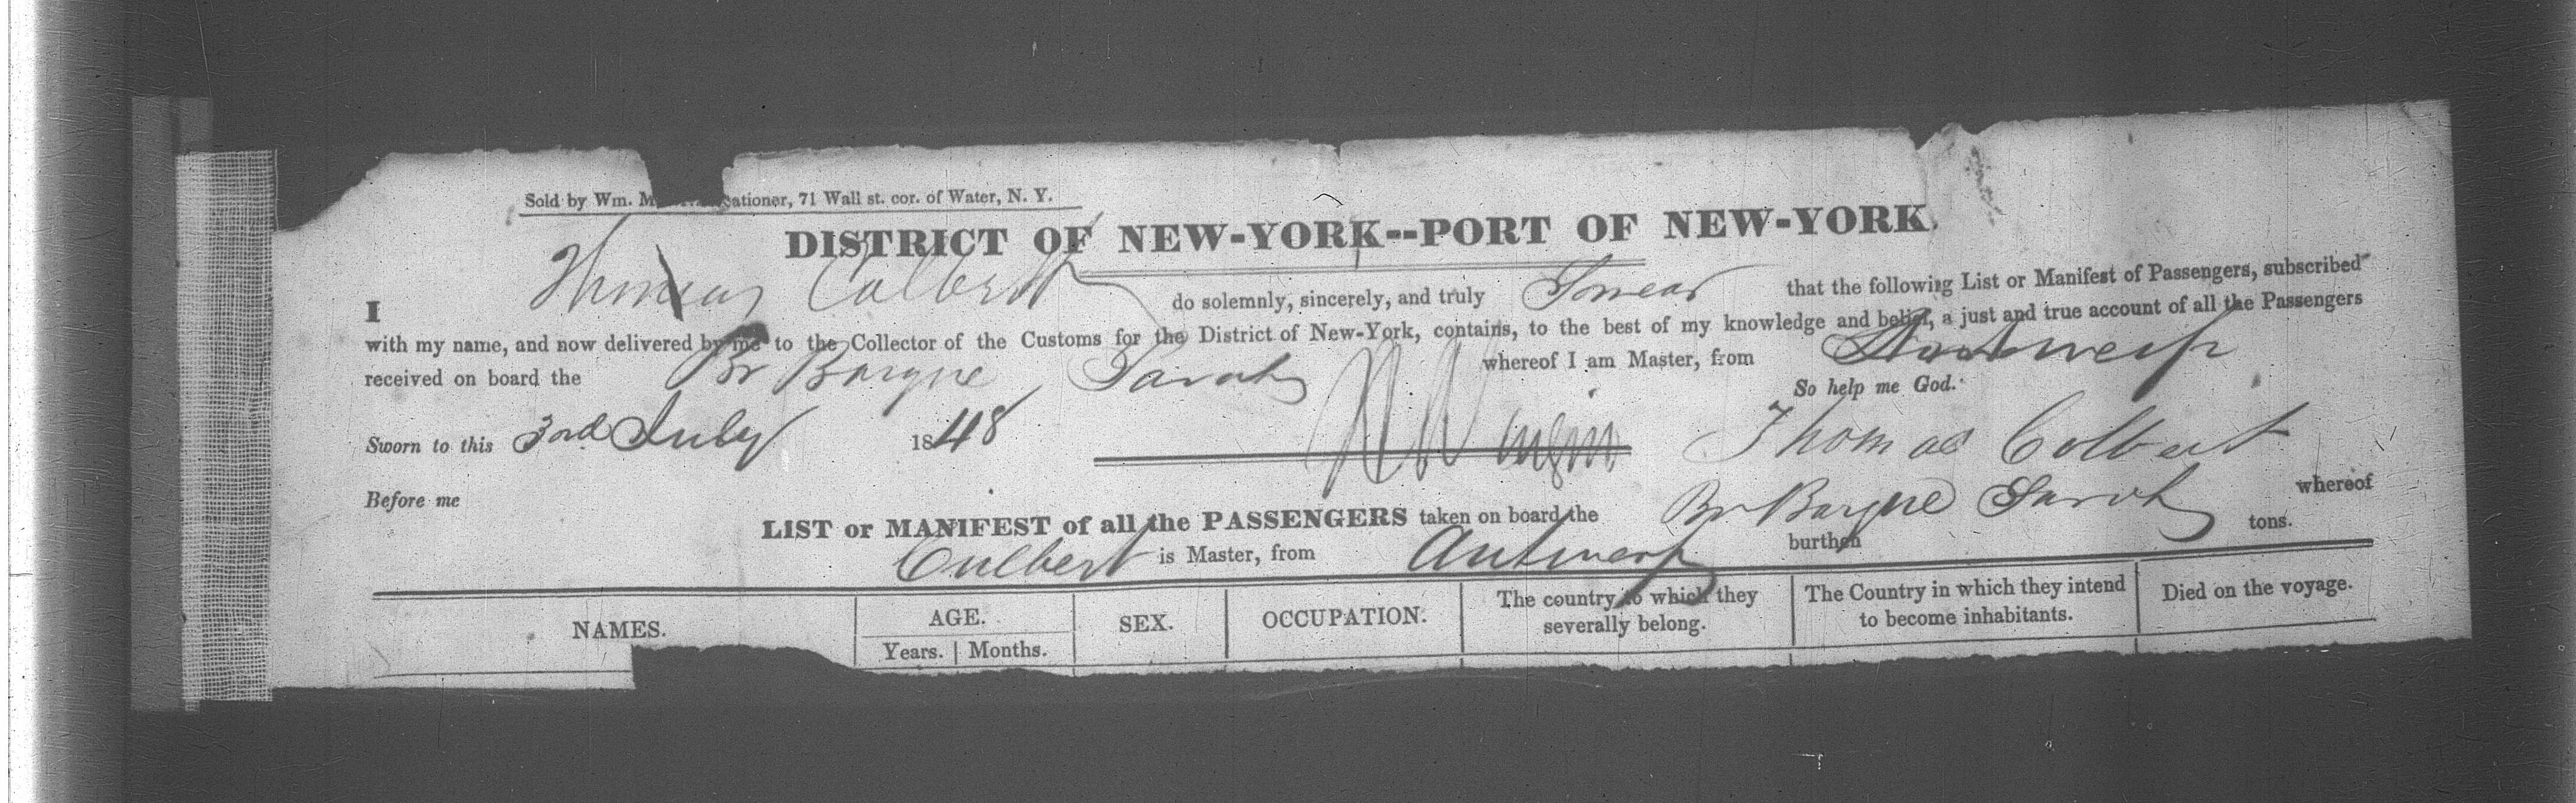 Sold by Wm. M ationer, 71 Wall st. cor. of Water, N. Y.
DISTRICT OF NEW-YORK--PORT OF NEW-YORK.
I Thomas Colbert do solemnly, sincerely, and truly Swear that the following List or Manifest of Passengers, subscribed
with my name, and now delivered by me to the Collector of the Customs for the District of New-York, contains, to the best of my knowledge and belief, a just and true account of all the Passengers
received on board the Br Barque Sarah whereof I am Master, from Antwerp
So help me God.
Sworn to this 3rd July 1848 Thomas Colbert
Before me
LIST or MANIFEST of all the PASSENGERS taken on board the Br Barque Sarah whereof
Culbert is Master, from Antwerp burthen tons.
NAMES. AGE. Years. Months. SEX. OCCUPATION. The country to which they severally belong. The Country in which they intend to become inhabitants. Died on the voyage.